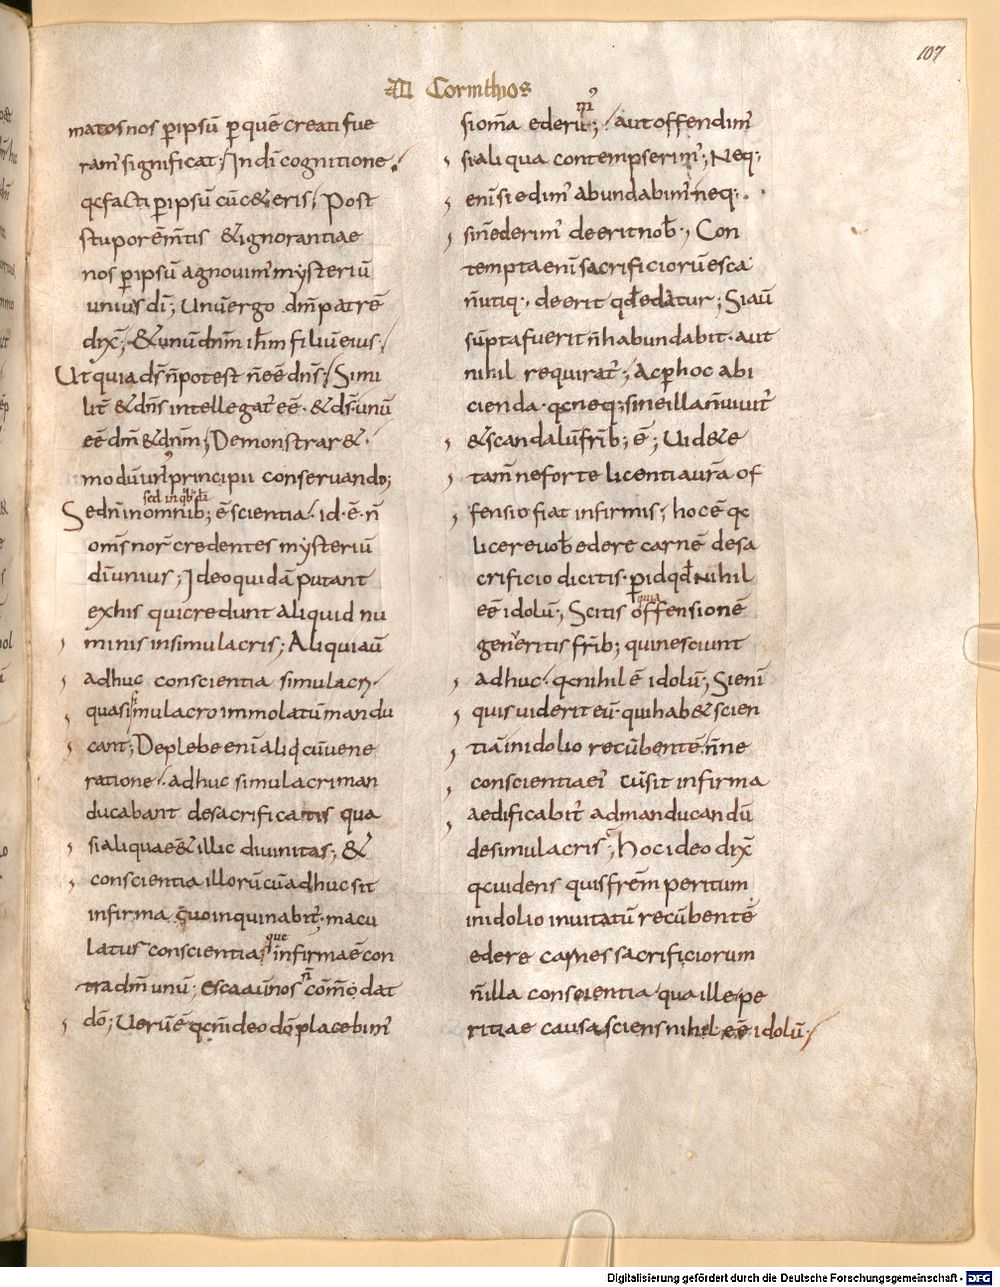 107
AD Corinthios
matos nos p̱ ipsū p̱ quē creati fue
ram̄ significat; In dī cognitione
qc̄ facti p̱ ipsū cū c& eris; Post
stuporē m̄tis & ignorantiae
nos p̱ ipsū agnouim' mysteriū
unius dī; Unū ergo dm̄ patrē
dix̄; & unū dn̄m ih̄m filiū eius;
Ut quia ds̄ n̄ potest n̄ eē dn̄s; Simi
lit̄ & dn̄s intellegat' eē · & ds̄ unū
eē dm̄ & dn̄m; Demonstrar& ·
modū uni' principii conseruando;
sed in qb;dā
Sed n̄ in omnib; ē scientia · id · ē · n̄
om̄s nor̄ credentes mysteriū
dī unius; Ideo quidā putant
ex his qui credunt aliquid nu
minis in simulacris; Aliqui aū
adhuc conscientia simulacri
quasi simulacro immolatū mandu
cant; De plebe enī aliq̄ cū uene
ratione adhuc simulacri man
ducabant de sacrificatis qua
si aliqua ē& illic diuinitas; &
conscientia illorū cū adhuc sit
infirma quo inquinabit̄; macu
que
latus conscientia infirma ē con
tra dm̄ unū; esca aū nos n̄ cōm̄dat
dō; Uerū ē qc̄ n̄ ideo dō placebim'
si om̄a ederim'; aut offendim'
si aliqua contempserim'; Neq;
enī si edim' abundabim' neq;
si n̄ ederim' deerit nob̄; Con
tempta enī sacrificiorū esca
n̄ utiq; deerit qd̄ edatur; Si aū
sūpta fuerit n̄ habundabit · aut
nihil requirat̄; Ac p̱ hoc abi
cienda · qc̄ neq; sine illa n̄ uiuit̄
& scandalū frīb; ē; Uid&e
tam̄ ne forte licentia ur̄a of
fensio fiat infirmis; hoc ē qc̄
licere uob̄ edere carnē de sa
crificio dicitis · p̱ id qd̄ nihil
quia
eē idolū; Scitis offensionē
generetis frīb; qui nesciunt
adhuc · qc̄ nihil ē idolū; Si enī
quis uiderit eū · qui hab& scien
tiā in idolio recūbentē · n̄ne
conscientia ei' cū sit infirma
aedificabit̄ ad manducandū
de simulacris; Hoc ideo dix̄
qc̄ uidens quis frēm peritum
in idolio inuitatū recūbentē
edere carnes sacrificiorum
n̄ illa conscientia qua ille pe
ritiae causa sciens nihil eē idolū
Digitalisierung gefördert durch die Deutsche Forschungsgemeinschaft - DFG